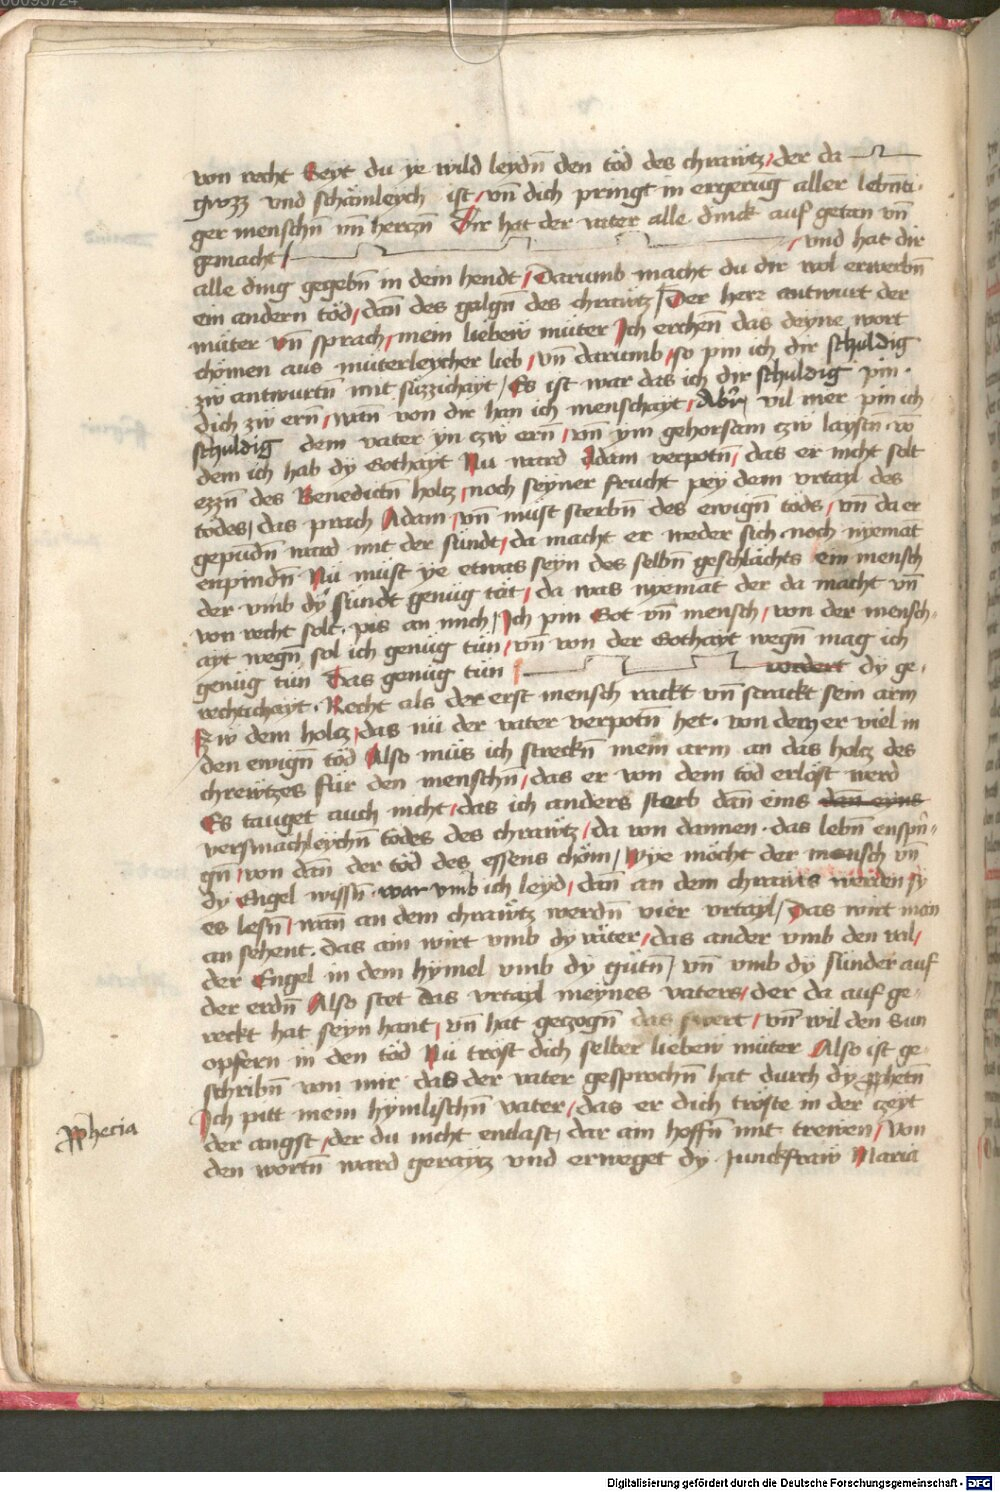 von recht Seyt du ye wild leydn̄ den töd des chrawtz / der da
grozz vnd schämleych ist / vn̄ dich pringt in ergerūg aller lebn̄ti-
ger menschn̄ im herczn̄ Dir hat der vater alle dinck auf getan vn̄
gemacht / / vnd hat dir
alle ding gegebn̄ in dein hendt / Darumb macht du dir wol erwerbn̄
ein andern töd / dan̄ des galgn̄ des chrawtz / Der herr antwurt der
müter vn̄ sprach / mein liebew müter Ich erchen̄ das deyne wort
chömen aus müterleycher lieb / vn̄ darumb / so pin ich dir schuldig
zw antwurtn̄ mit süzzichayt / Es ist war das ich dir schuldig pin ·
dich zw ern̄ / wan̄ von dir han ich menschayt / Aber vil mer pin ich
schuldig dem vater yn czw ern̄ / vn̄ ym gehorsam czw laystn̄ · vō
dem ich hab dy Gothayt Nu ward Adam verpotn̄ / das er nicht solt
ezzn̄ des Benedictn̄ holtz / noch seyner frucht pey dem vrtayl des
todes / das prach Adam / vn̄ must sterbn̄ des ewign̄ tods / vn̄ da er
gepūdn̄ ward mit der sündt / da macht er weder sich noch nyemāt
enpindn̄ Nü müst ye etwas seyn des selbn̄ geschlächts ein mensch
der vmb dy sündt genüg tät / da was nyemāt der da macht vn̄
von recht solt · pis an mich / Ich pin Got vn̄ mensch / von der mensch-
ayt wegn̄ sol ich genüg tün / vn̄ von der Gothayt wegn̄ mag ich
genüg tün Das genüg tün / vordert dy ge-
rechtichayt · Recht als der erst mensch rackt vn̄ strackt sein arm
Zw dem holtz / das nü der vater verpotn̄ het · von dem er viel in
den ewign̄ töd Also müs ich streckn̄ mein arm an das holtz des
chrewtzes für den menschn̄ / das er von dem tod erlöst werd
Es tauget auch nicht / das ich anders sterb dan̄ eins dan̄ eyns
versmachleychn̄ todes des chrawtz / da von dannen · das lebn̄ enspri-
gn̄ / von dan̄ der töd des essens chöm / Wye möcht der mensch vn̄
dy Engel wissn̄ · war vmb ich leyd / dan̄ an dem chraws werden sy
es lesn̄ / wan̄ an dem chrawtz werdn̄ vier vrtayl / Das wirt man
an sehent · das ain wirt vmb dy väter / das ander vmb den val /
der Engel in dem hymel vmb dy gütn̄ / vn̄ vmb dy sünder auf
der erdn̄ Also stet das vrtayl meynes vaters / der da auf ge-
reckt hat seyn hant / vn̄ hat geczogn̄ das swert / vn̄ wil den Sun
opfern in den töd Nü tröst dich selber liebew müter Also ist ge-
schribn̄ von mir das der vater gesprochn̄ hat durch dy prophetn̄
Ich pitt mein hymlischn̄ vater / das er dich tröste in der czeyt
Prophecia
der angst / der du nicht entlast / dar ain hoffn̄ mit trewen / Von
den wortn̄ ward geraytz vnd erweget dy Junckfraw Maria
Digitalisierung gefördert durch die Deutsche Forschungsgemeinschaft - DFG